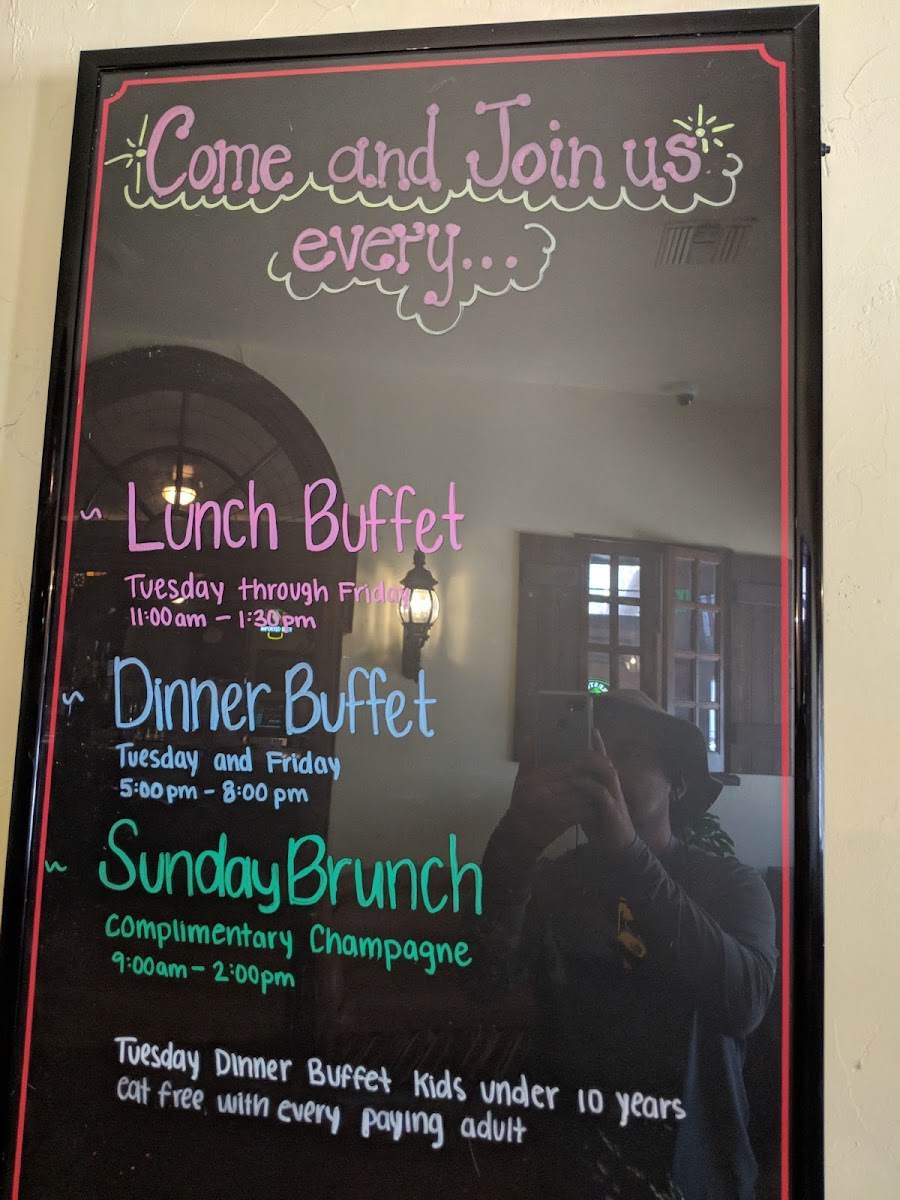 Come and Join us
every...
Lunch Buffet
Tuesday through Friday
11:00am - 1:30pm
Dinner Buffet
Tuesday and Friday
5:00pm - 8:00pm
Sunday Brunch
Complimentary Champagne
9:00am - 2:00pm
Tuesday Dinner Buffet Kids under 10 years
eat free with every paying adult